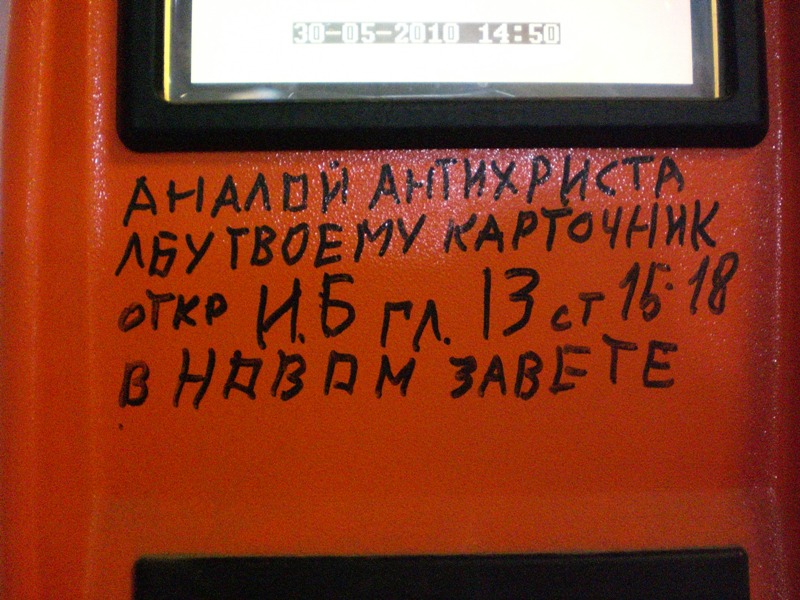 30-05-2010 14:50
АНАЛОЙ АНТИХРИСТА
ЛБУ ТВОЕМУ КАРТОЧНИК
ОТКР И.Б ГЛ. 13 СТ 15-18
В НОВОМ ЗАВЕТЕ